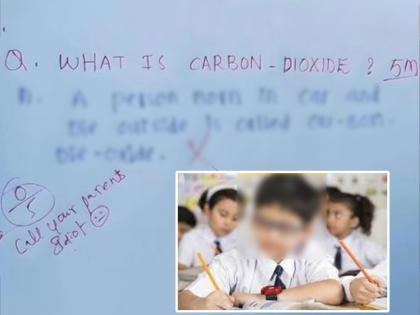 Q. WHAT IS CARBON-DIOXIDE ? 5M
A person born in car and
die outside is called car-bon-
die-oxide.
0/5
Call your parents
idiot